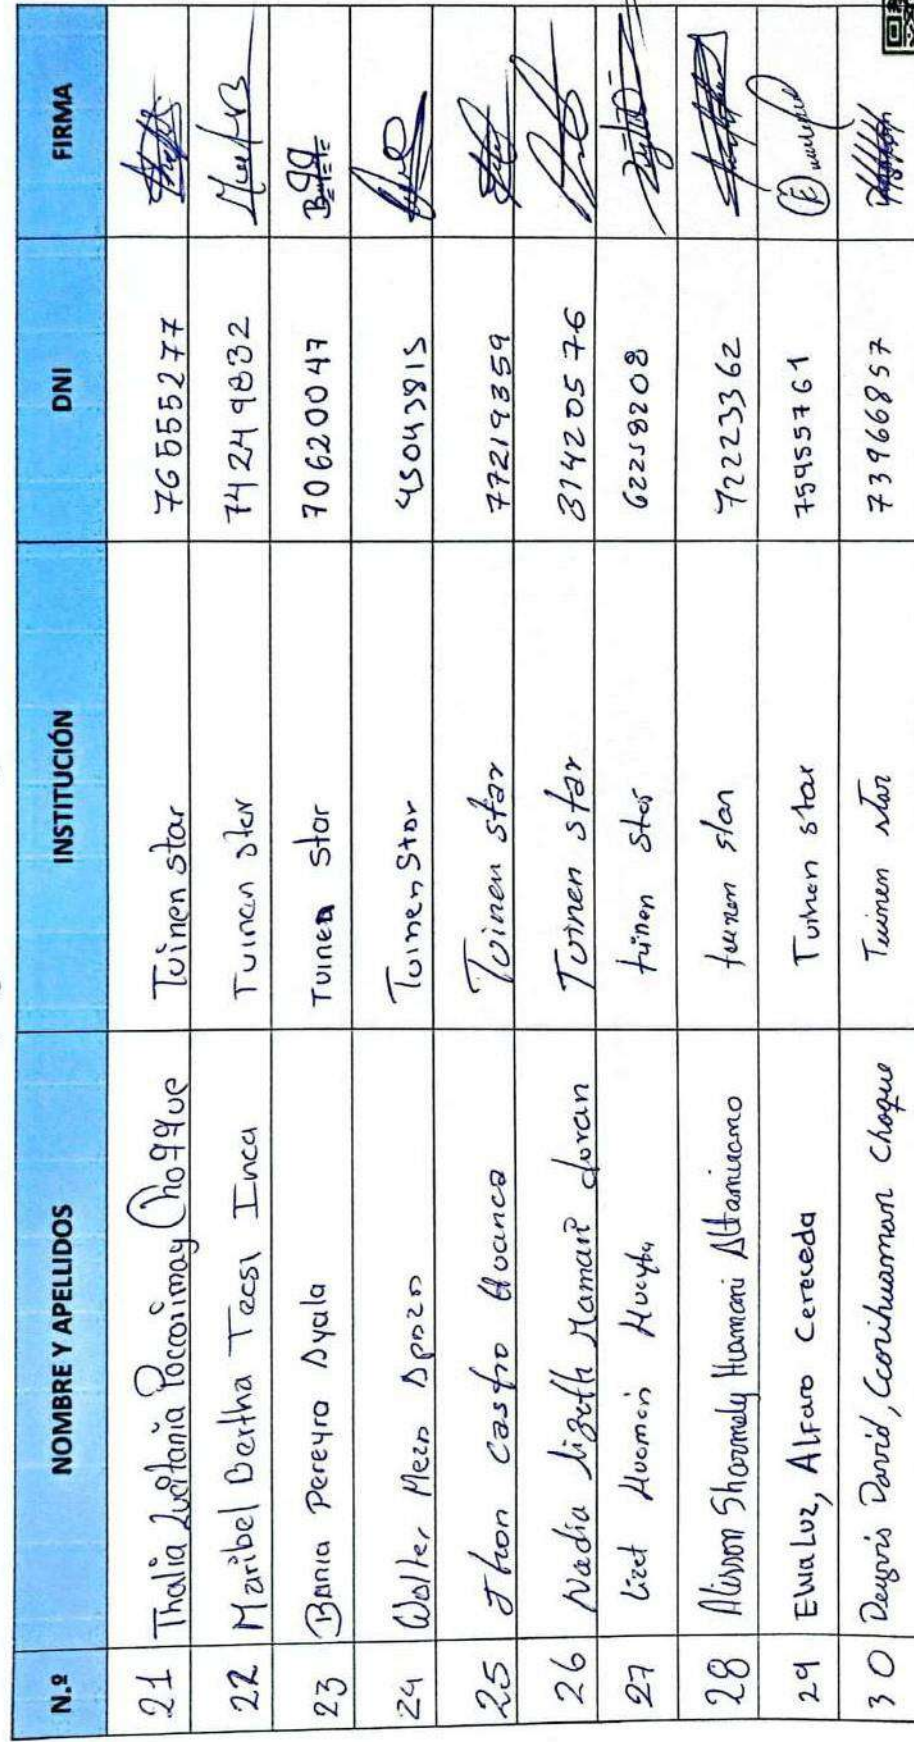 N.º NOMBRE Y APELLIDOS INSTITUCIÓN DNI FIRMA
21 Thalia Lucitania Pocconimay Choqque Tuinen star 76555277
22 Maribel Bertha Tacsi Inca Tuinen star 74249832
23 Bania Pereyra Ayala Tuinen star 70620047
24 Walter Meza Tuinen star 45043815
25 Jhon Castro Huanca Tuinen star 77219359
26 Nadia Lizeth Mamani Tuinen star 31420576
27 Lizet Huamani tuinen star 62258208
28 Alisson Sharmely Huamani Altamirano tuinen star 72223362
29 Elua Luz, Alfaro Cereceda Tuinen star 75955761
30 Deyvis David, Ccorihuaman Choque Tuinen star 73966857